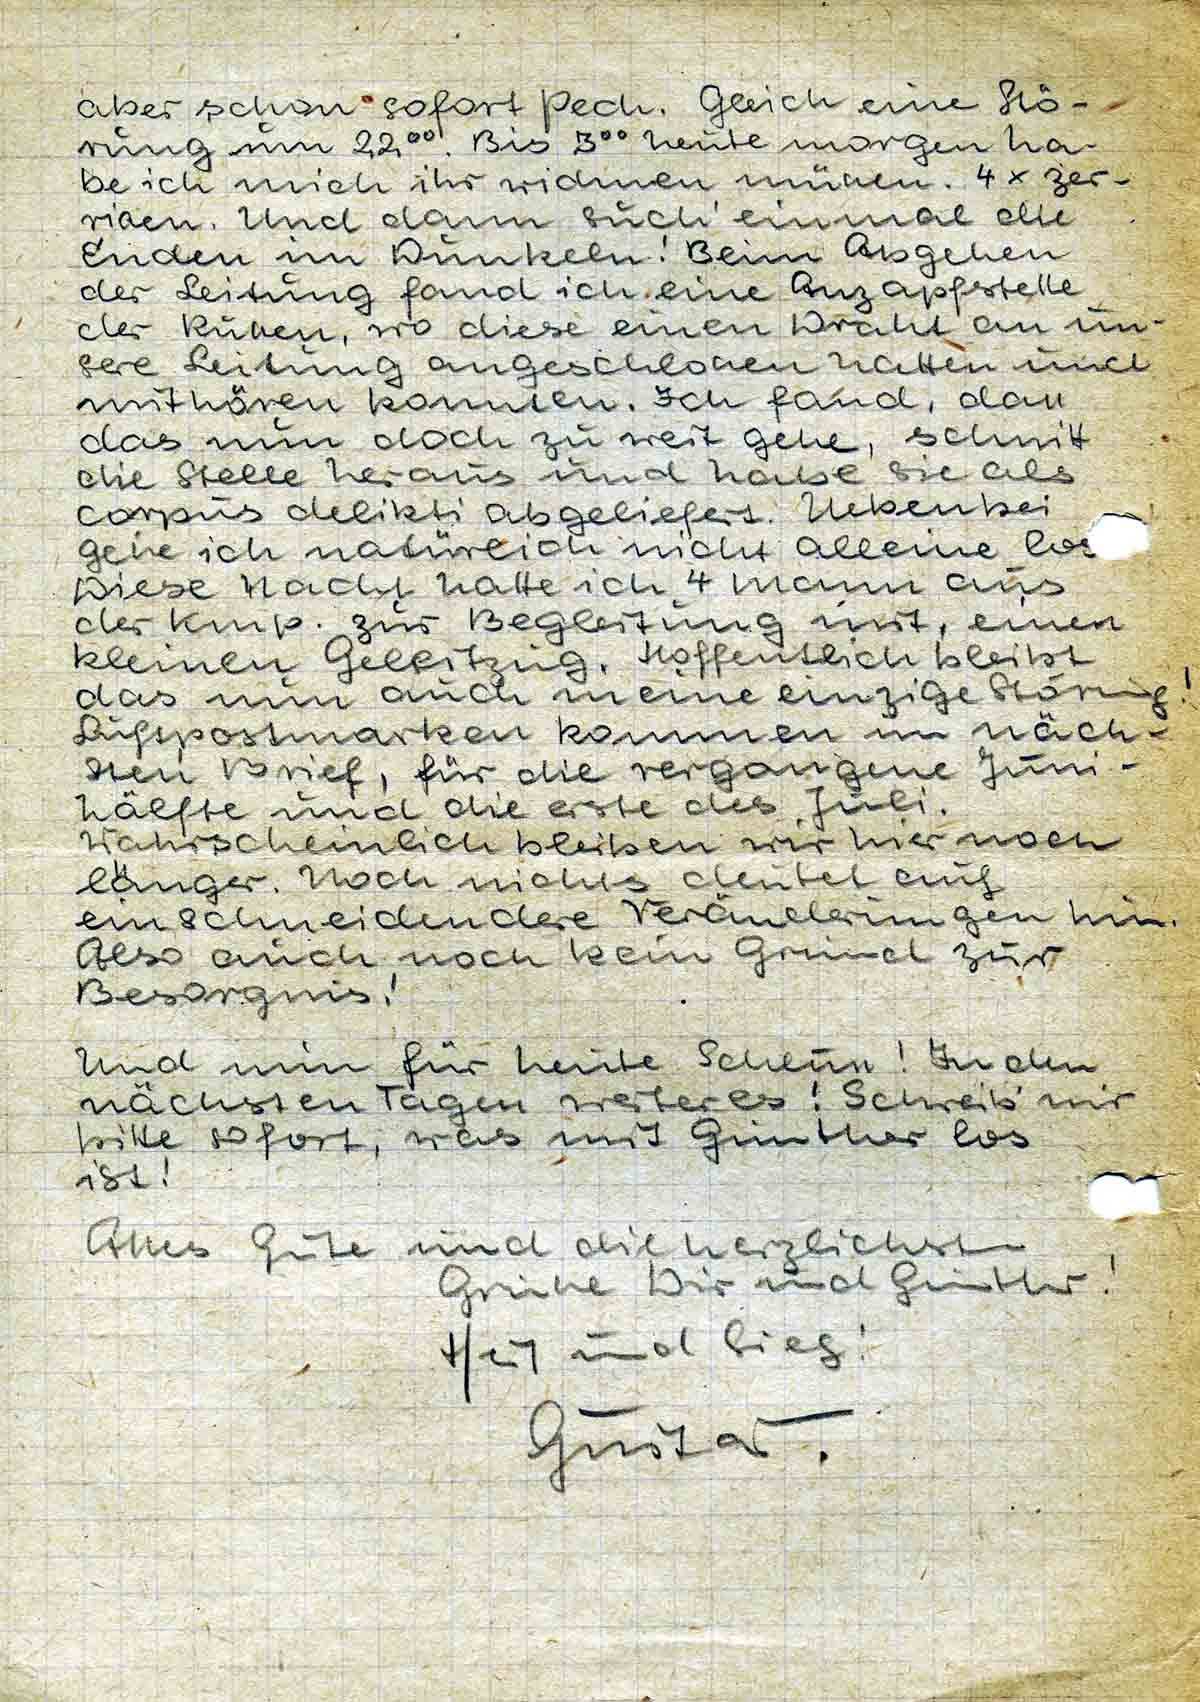 aber schon sofort Pech. Gleich eine Stö-
rung um 22⁰⁰. Bis 3⁰⁰ heute morgen ha-
be ich mich ihr widmen müssen. 4 x zer-
rissen. Und dann such' einmal die
Enden im Dunkeln! Beim Abgehen
der Leitung fand ich eine Anzapfstelle
der Russen, wo diese einen Draht an un-
sere Leitung angeschlossen hatten und
mithören konnten. Ich fand, dass
das nun doch zu weit gehe, schnitt
die Stelle heraus und habe sie als
corpus delikti abgeliefert. Nebenbei
gehe ich natürlich nicht alleine los
Diese Nacht hatte ich 4 Mann aus
der Kmp. zur Begleitung mit, einen
kleinen Geleitzug. Hoffentlich bleibt
das nun auch meine einzige Störung!
Luftpostmarken kommen im näch-
sten Brief, für die vergangene Juni-
hälfte und die erste des Juli.
Wahrscheinlich bleiben wir hier noch
länger. Noch nichts deutet auf
einschneidendere Veränderungen hin.
Also auch noch kein Grund zur
Besorgnis!
Und nun für heute Schluss! In den
nächsten Tagen weiteres! Schreib' mir
bitte sofort, was mit Günther los
ist!
Alles Gute und die herzlichsten
Grüsse Dir und Günther!
Heil und Sieg!
Gustav.